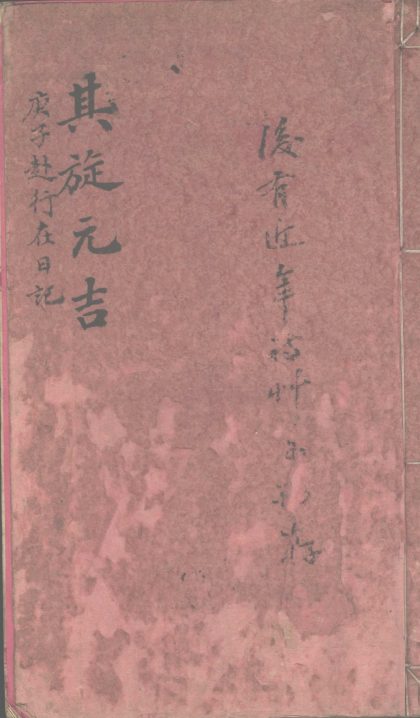 後有近年詩艸
其旋元吉
庚子赴行在日記